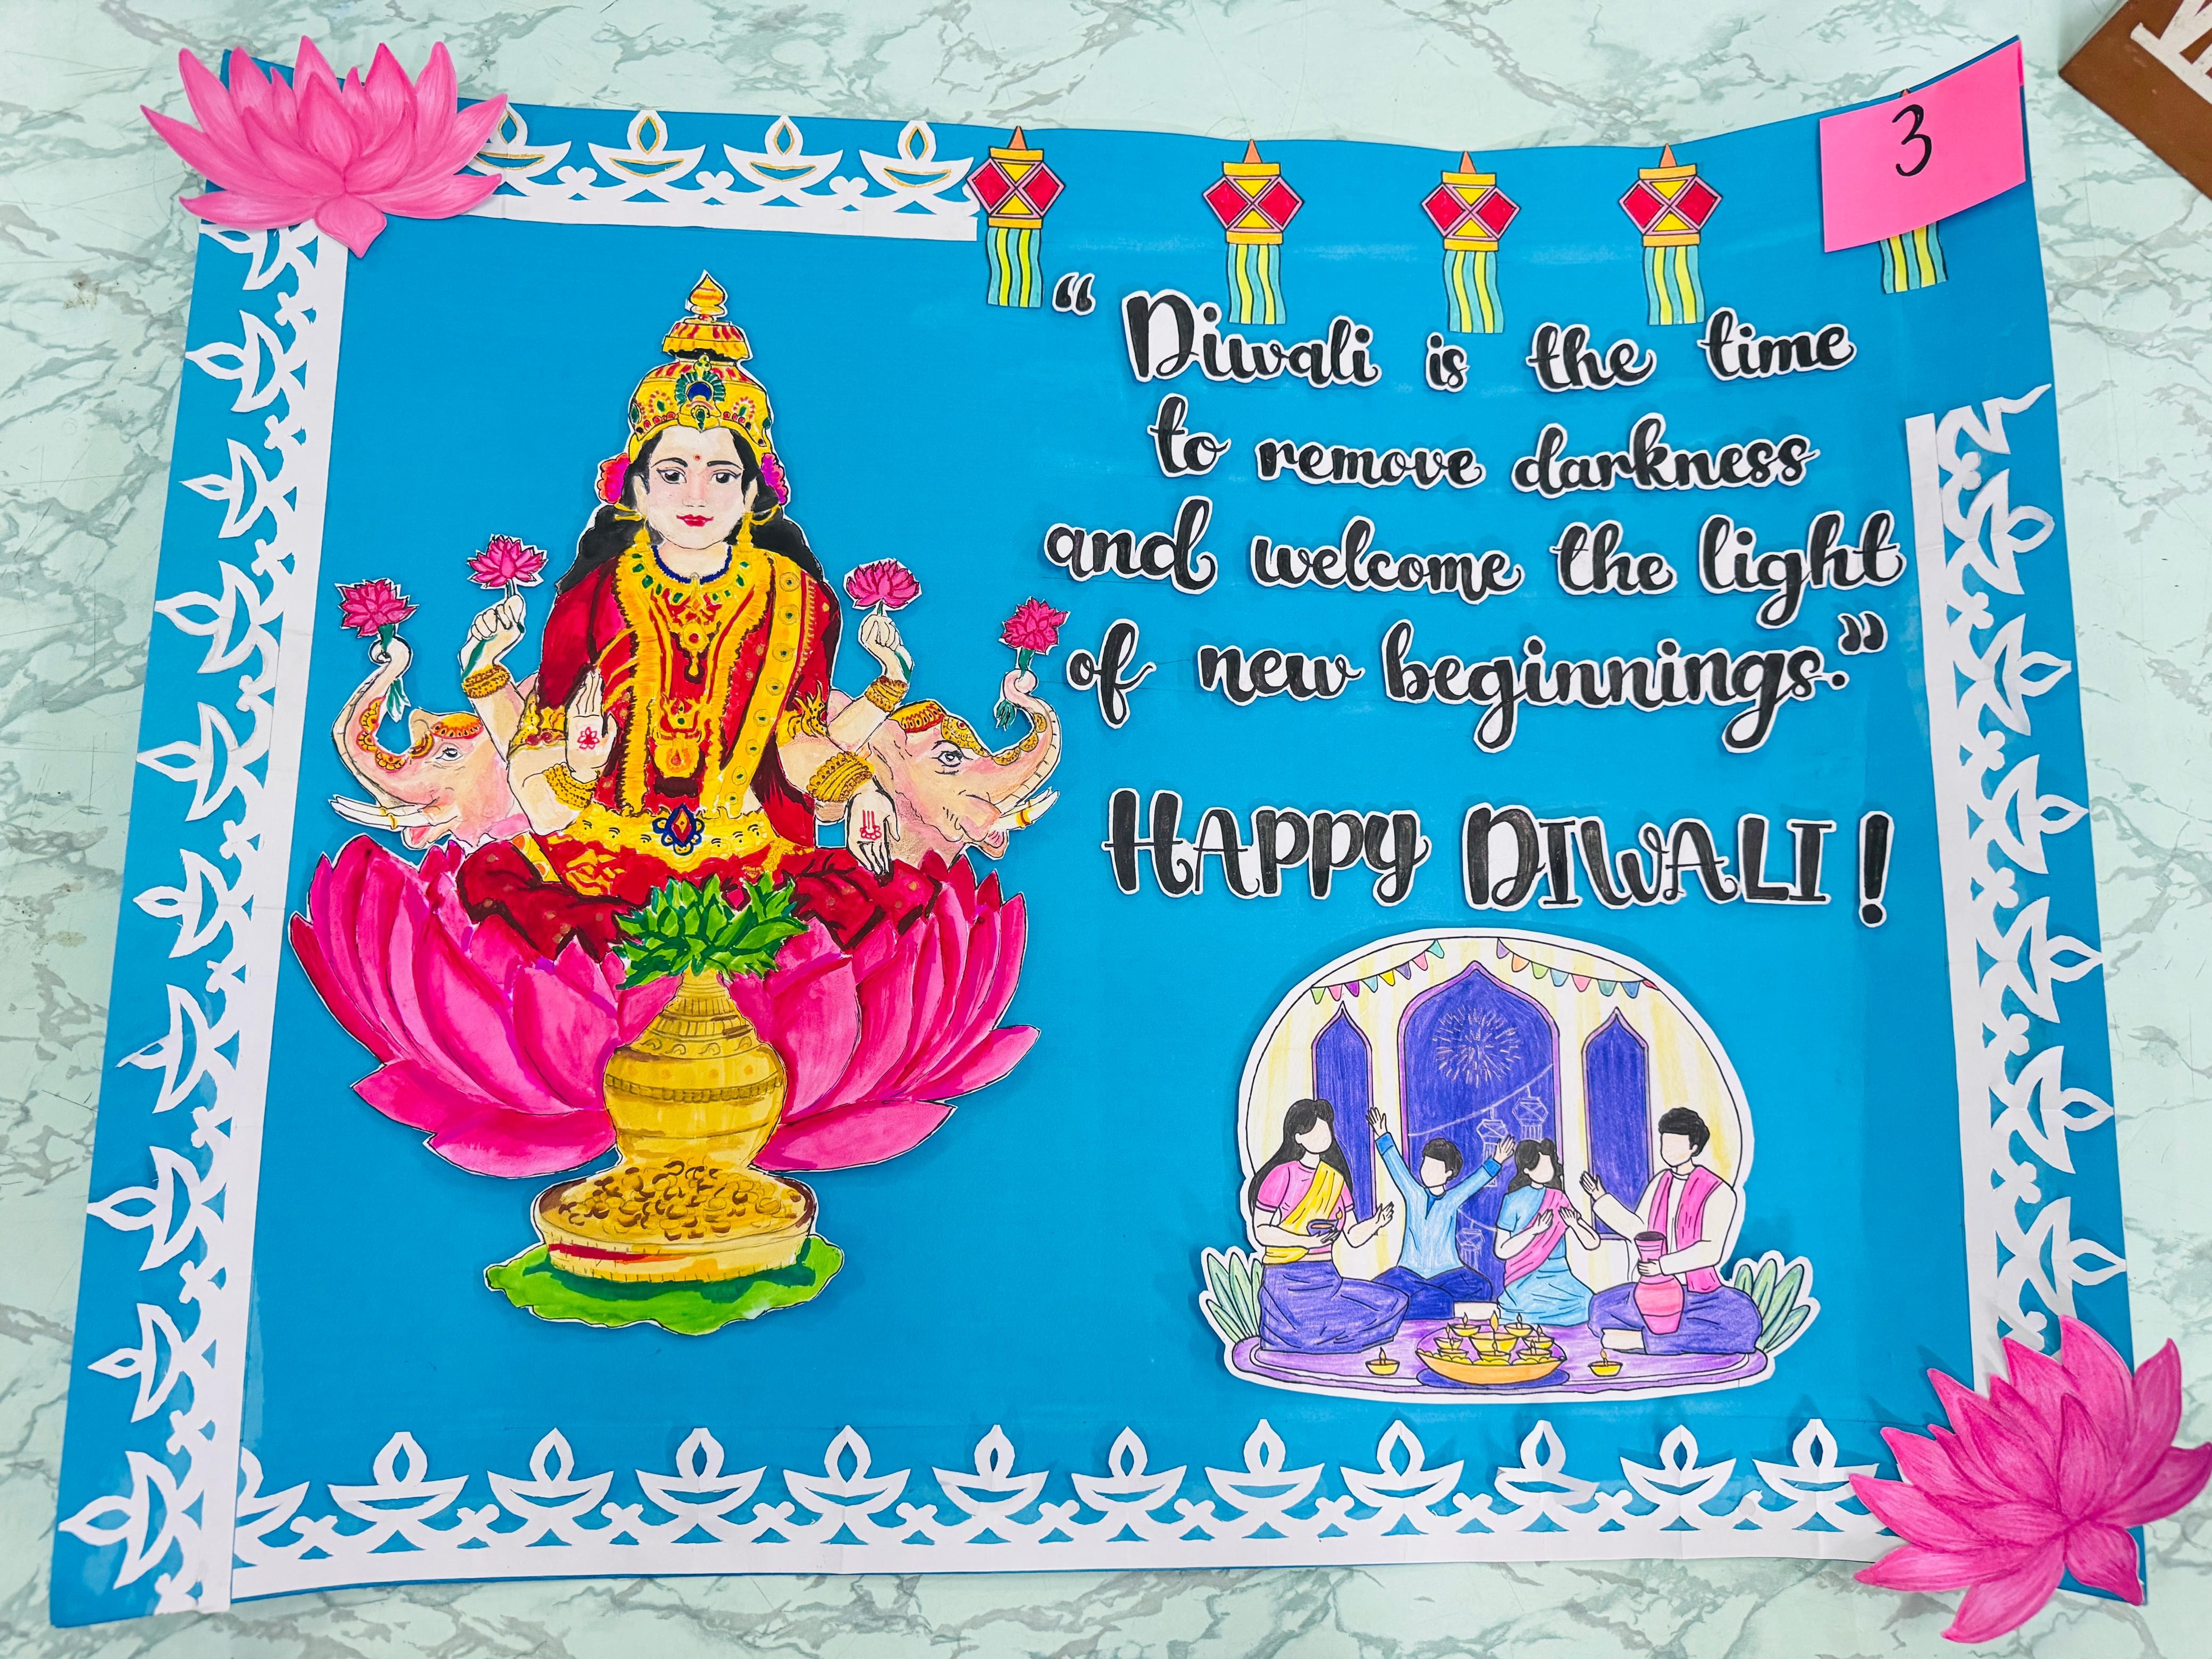 3
“Diwali is the time
to remove darkness
and welcome the light
of new beginnings.”
HAPPY DIWALI!